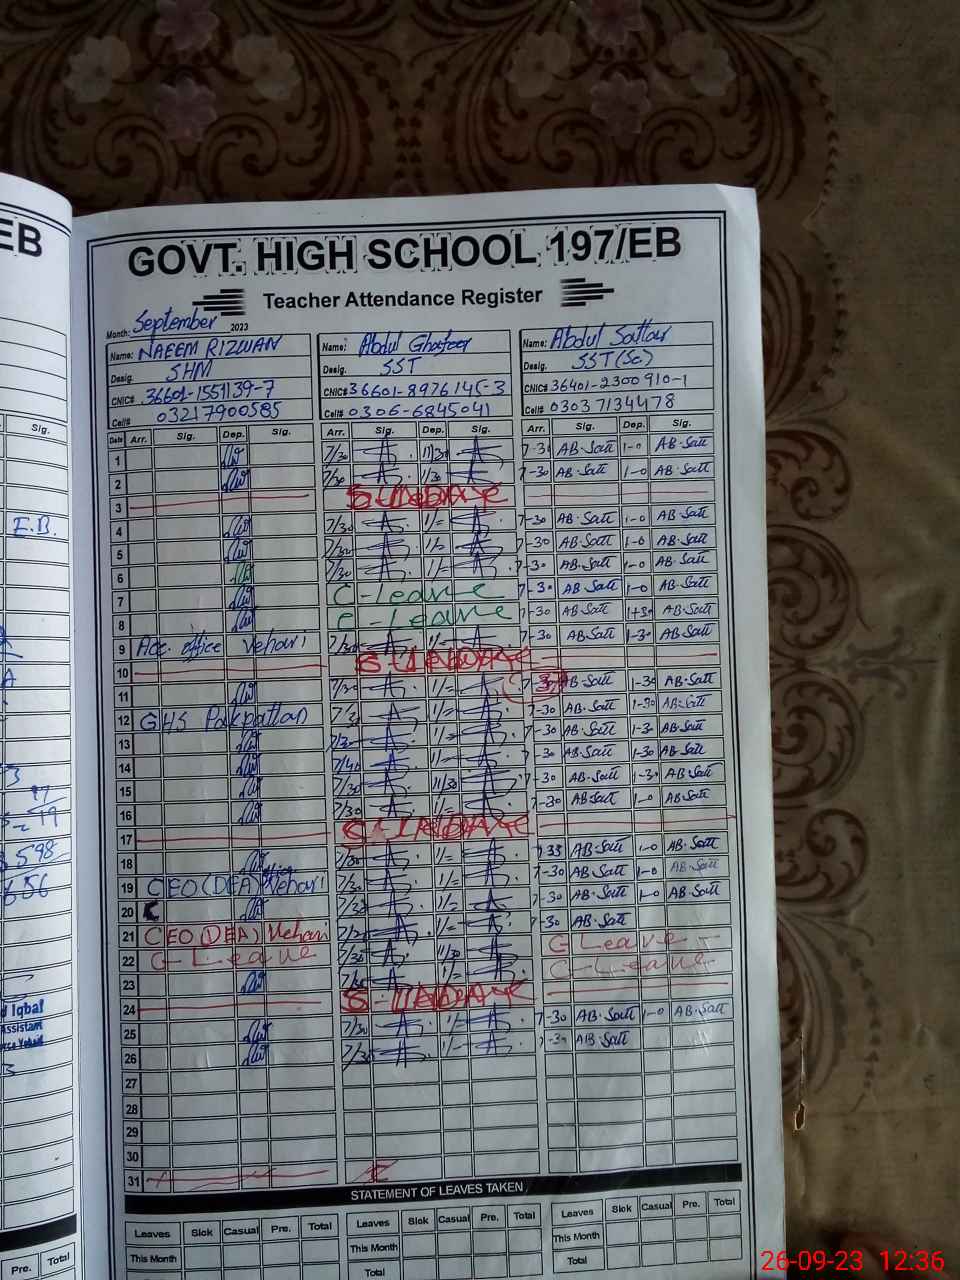 EB
GOVT. HIGH SCHOOL 197/EB
Teacher Attendance Register
Month: September 2023
Name: NAEEM RIZWAN Name: Abdul Ghafoor Name: Abdul Sattar
Desig. SHM Desig. SST Desig. SST (Sc)
CNIC# 36601-1551139-7 CNIC# 36601-8976145-3 CNIC# 36401-2300910-1
Cell# 03217900585 Cell# 0306-6845041 Cell# 0303 7134478
Sig. Date Arr. Sig. Dep. Sig. Arr. Sig. Dep. Sig. Arr. Sig. Dep. Sig.
1 7/30 11/30 7-30 AB.Satt 1-0 AB.Satt
2 7/30 11/30 7-30 AB.Satt 1-0 AB.Satt
3 SUNDAY
E.B. 4 7/30 1/= 7-30 AB.Satt 1-0 AB.Satt
5 7/30 7-30 AB.Satt 1-0 AB.Satt
6 7/30 1/= 7-30 AB.Satt 1-0 AB.Satt
7 C-Leave 7-30 AB.Satt 1-0 AB.Satt
8 C-Leave 7-30 AB.Satt 1-30 AB.Satt
9 Acc. office Vehari 7/30 1/= 7-30 AB.Satt 1-30 AB.Satt
10 SUNDAY
11 7/30 1/= 7-30 AB.Satt 1-30 AB.Satt
12 GHS Pakpattan 7/30 1/= 7-30 AB.Satt 1-30 AB.Satt
13 7/30 1/= 7-30 AB.Satt 1-30 AB.Satt
14 7/40 1/= 7-30 AB.Satt 1-30 AB.Satt
15 7/30 11/30 7-30 AB.Satt 1-30 AB.Satt
16 7/30 1/= 7-30 AB.Satt 1-0 AB.Satt
17 SUNDAY
598 18 7/30 1/= 7-35 AB.Satt 1-0 AB.Satt
656 19 CEO (DEA) office Vehari 7/30 1/= 7-30 AB.Satt 1-0 AB.Satt
20 7/30 7-30 AB.Satt 1-0 AB.Satt
21 CEO (DEA) Vehari 1/= 7-30 AB.Satt
22 C-Leave 7/30 11/30 C Leave
23 7/30 1/= C-Leave
24 SUNDAY
d Iqbal
Assistant
25 7/30 1/= 7-30 AB.Satt 1-0 AB.Satt
26 7/30 1/- 7-30 AB.Satt
27
28
29
30
31
STATEMENT OF LEAVES TAKEN
Leaves Sick Casual Pre. Total Leaves Sick Casual Pre. Total Leaves Sick Casual Pre. Total
This Month This Month This Month
Pre. Total Total Total
26-09-23 12:36